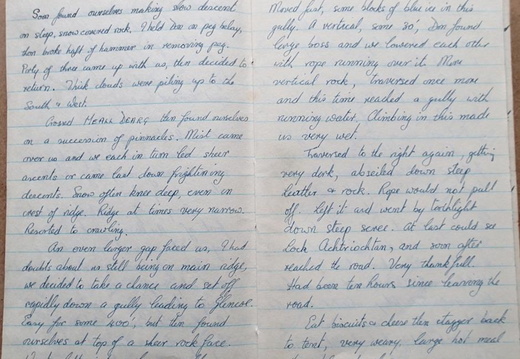 Soon found ourselves making slow descent
on steep, snow covered rock. I held Don on peg belay,
Don broke haft of hammer in removing peg.
Party of three came up with us, then decided to
return. Thick clouds were piling up to the
South & West.
Crossed MEALL DEARG then found ourselves
on a succession of pinnacles. Mist came
over us and we each in turn led sheer
ascents or came last down frightening
descents. Snow often knee deep, even on
crest of ridge. Ridge at times very narrow.
Resorted to crawling.
An even larger gap faced us, I had
doubts about us still being on main ridge,
we decided to take a chance and set off
rapidly down a gully leading to Glencoe.
Easy for some 400', but then found
ourselves at top of a sheer rock face.
Moved fast, some blocks of blue ice in this
gully. A vertical, some 30', Don found
large boss and we lowered each other
with rope running over it. More
vertical rock, traversed once more
and this time reached a gully with
running water. Climbing in this made
us very wet.
Traversed to the right again, getting
very dark, abseiled down steep
heather & rock. Rope would not pull
off. Left it and went by torchlight
down steep scree. At last could see
Loch Achtriochtan, and soon after
reached the road. Very thankfull.
Had been ten hours since leaving the
road.
Eat biscuits & cheese then stagger back
to tent, very weary, large hot meal